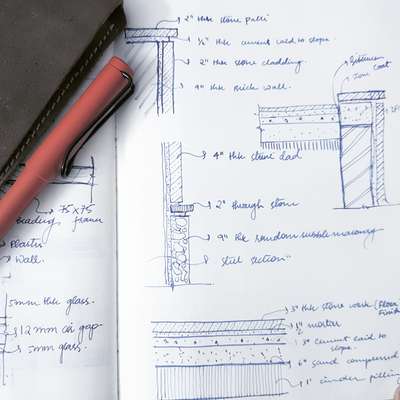 2" thk stone patti
½" thk cement laid to slope.
2" thk stone cladding
9" thk brick wall.
Bitumen
coat
4" thk stone clad
2" through stone
9" thk random rubble masonry
75x75
frame
Plaster
Wall.
5mm thk glass.
12 mm air gap
5mm glass.
3" thk stone work (Floor
Finish
mortar
3" cement laid to
slope.
6" sand compressed
1' cinder filling